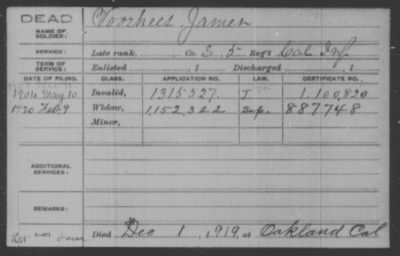 DEAD
NAME OF SOLDIER: Voorhees James
SERVICE: Late rank, Co. E. 5 Reg't Cal Inf
TERM OF SERVICE: Enlisted , 1 Discharged , 1
DATE OF FILING. CLASS. APPLICATION NO. LAW. CERTIFICATE NO.
1904 May 10 Invalid, 1315527 J 1.100,820
1920 Feb. 9 Widow, 1,152,322 887748
Minor,
ADDITIONAL SERVICES:
REMARKS:
Died Dec 1, 1919, at Oakland Cal